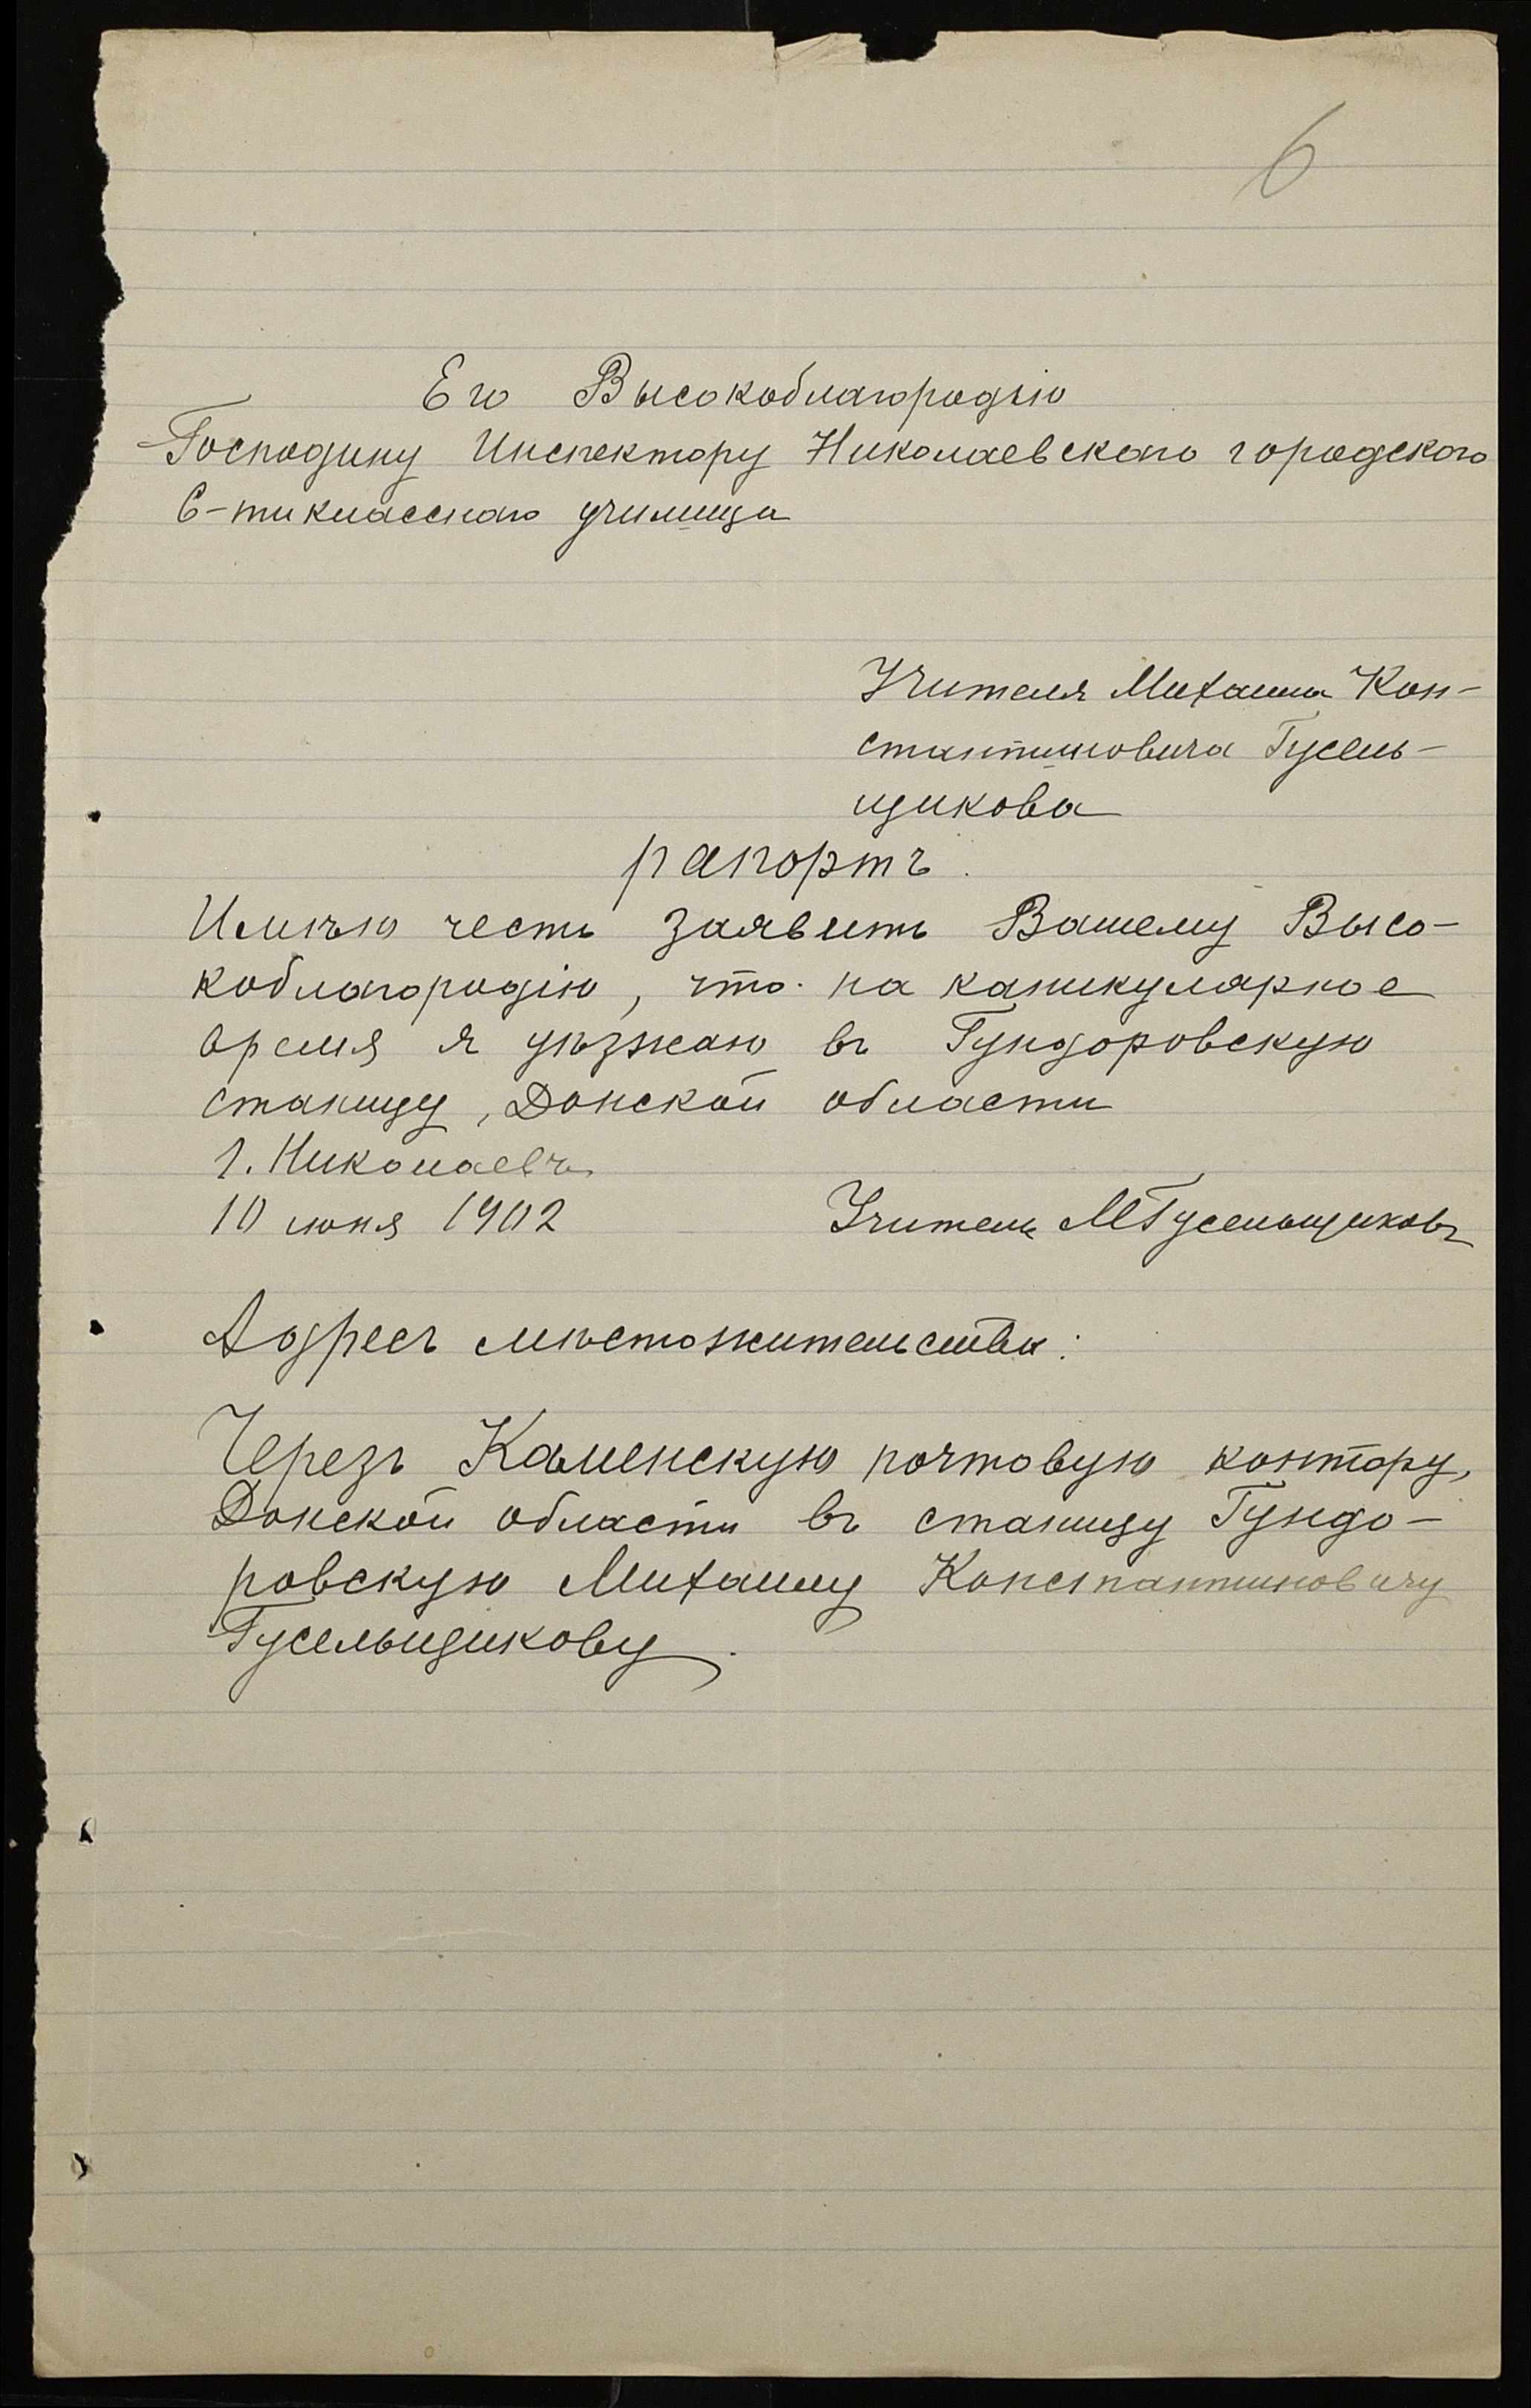 6
Его Высокоблагородію
Господину Инспектору Николаевскаго городского
6-тикласснаго училища
Учителя Михаила Кон-
стантиновича Гусель-
щикова
рапортъ.
Имѣю честь заявить Вашему Высо-
коблагородію, что на каникулярное
время я уѣзжаю въ Гундоровскую
станицу, Донской области
г. Николаевъ
10 июня 1902
Учитель МГусельщиковъ
Адресъ мѣстожительства:
Черезъ Каменскую почтовую контору,
Донской области въ станицу Гундо-
ровскую Михаилу Константиновичу
Гусельщикову.